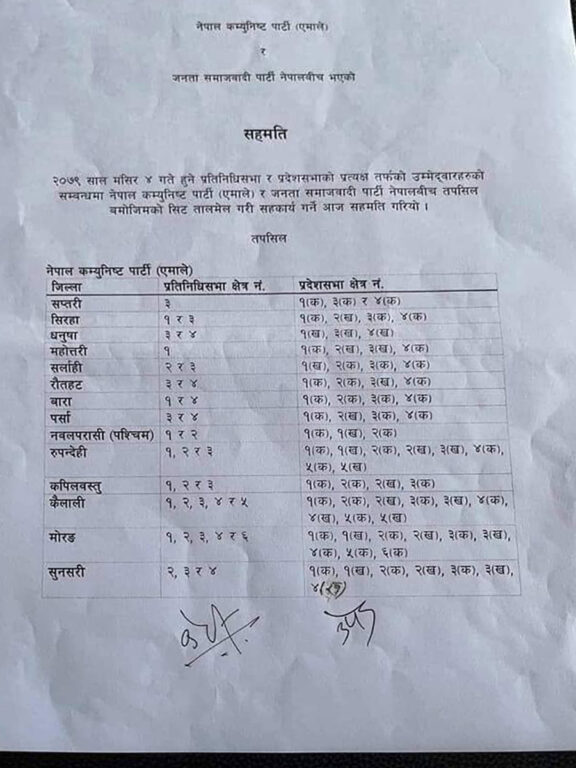 नेपाल कम्युनिष्ट पार्टी (एमाले)
र
जनता समाजवादी पार्टी नेपालबीच भएको
सहमति
२०७९ साल मंसिर ४ गते हुने प्रतिनिधिसभा र प्रदेशसभाको प्रत्यक्ष तर्फको उम्मेद्वारहरुको
सम्वन्धमा नेपाल कम्युनिष्ट पार्टी (एमाले) र जनता समाजवादी पार्टी नेपालबीच तपसिल
बमोजिमको सिट तालमेल गरी सहकार्य गर्ने आज सहमति गरियो ।
तपसिल
नेपाल कम्युनिष्ट पार्टी (एमाले)
जिल्ला प्रतिनिधिसभा क्षेत्र नं. प्रदेशसभा क्षेत्र नं.
सप्तरी ३ १(क), ३(क) र ४(क)
सिरहा १ र ३ १(क), २(ख), ३(क), ४(क)
धनुषा ३ र ४ १(ख), ३(ख), ४(ख)
महोत्तरी १ १(क), २(ख), ३(ख), ४(क)
सर्लाही २ र ३ १(ख), २(क), ३(क), ४(क)
रौतहट ३ र ४ १(क), २(क), ३(ख), ४(क)
बारा १ र ४ १(क), २(क), ३(क), ४(क)
पर्सा ३ र ४ १(क), २(ख), ३(क), ४(क)
नवलपरासी (पश्चिम) १ र २ १(क), १(ख), २(क)
रुपन्देही १, २ र ३ १(क), १(ख), २(क), २(ख), ३(ख), ४(क),
५(क), ५(ख)
कपिलवस्तु १, २ र ३ १(क), २(क), २(ख), ३(क)
कैलाली १, २, ३, ४ र ५ १(क), २(क), २(ख), ३(क), ३(ख), ४(क),
४(ख), ५(क), ५(ख)
मोरङ १, २, ३, ४ र ६ १(क), १(ख), २(क), २(ख), ३(क), ३(ख),
४(क), ५(क), ६(क)
सुनसरी २, ३ र ४ १(क), १(ख), २(क), २(ख), ३(क), ३(ख),